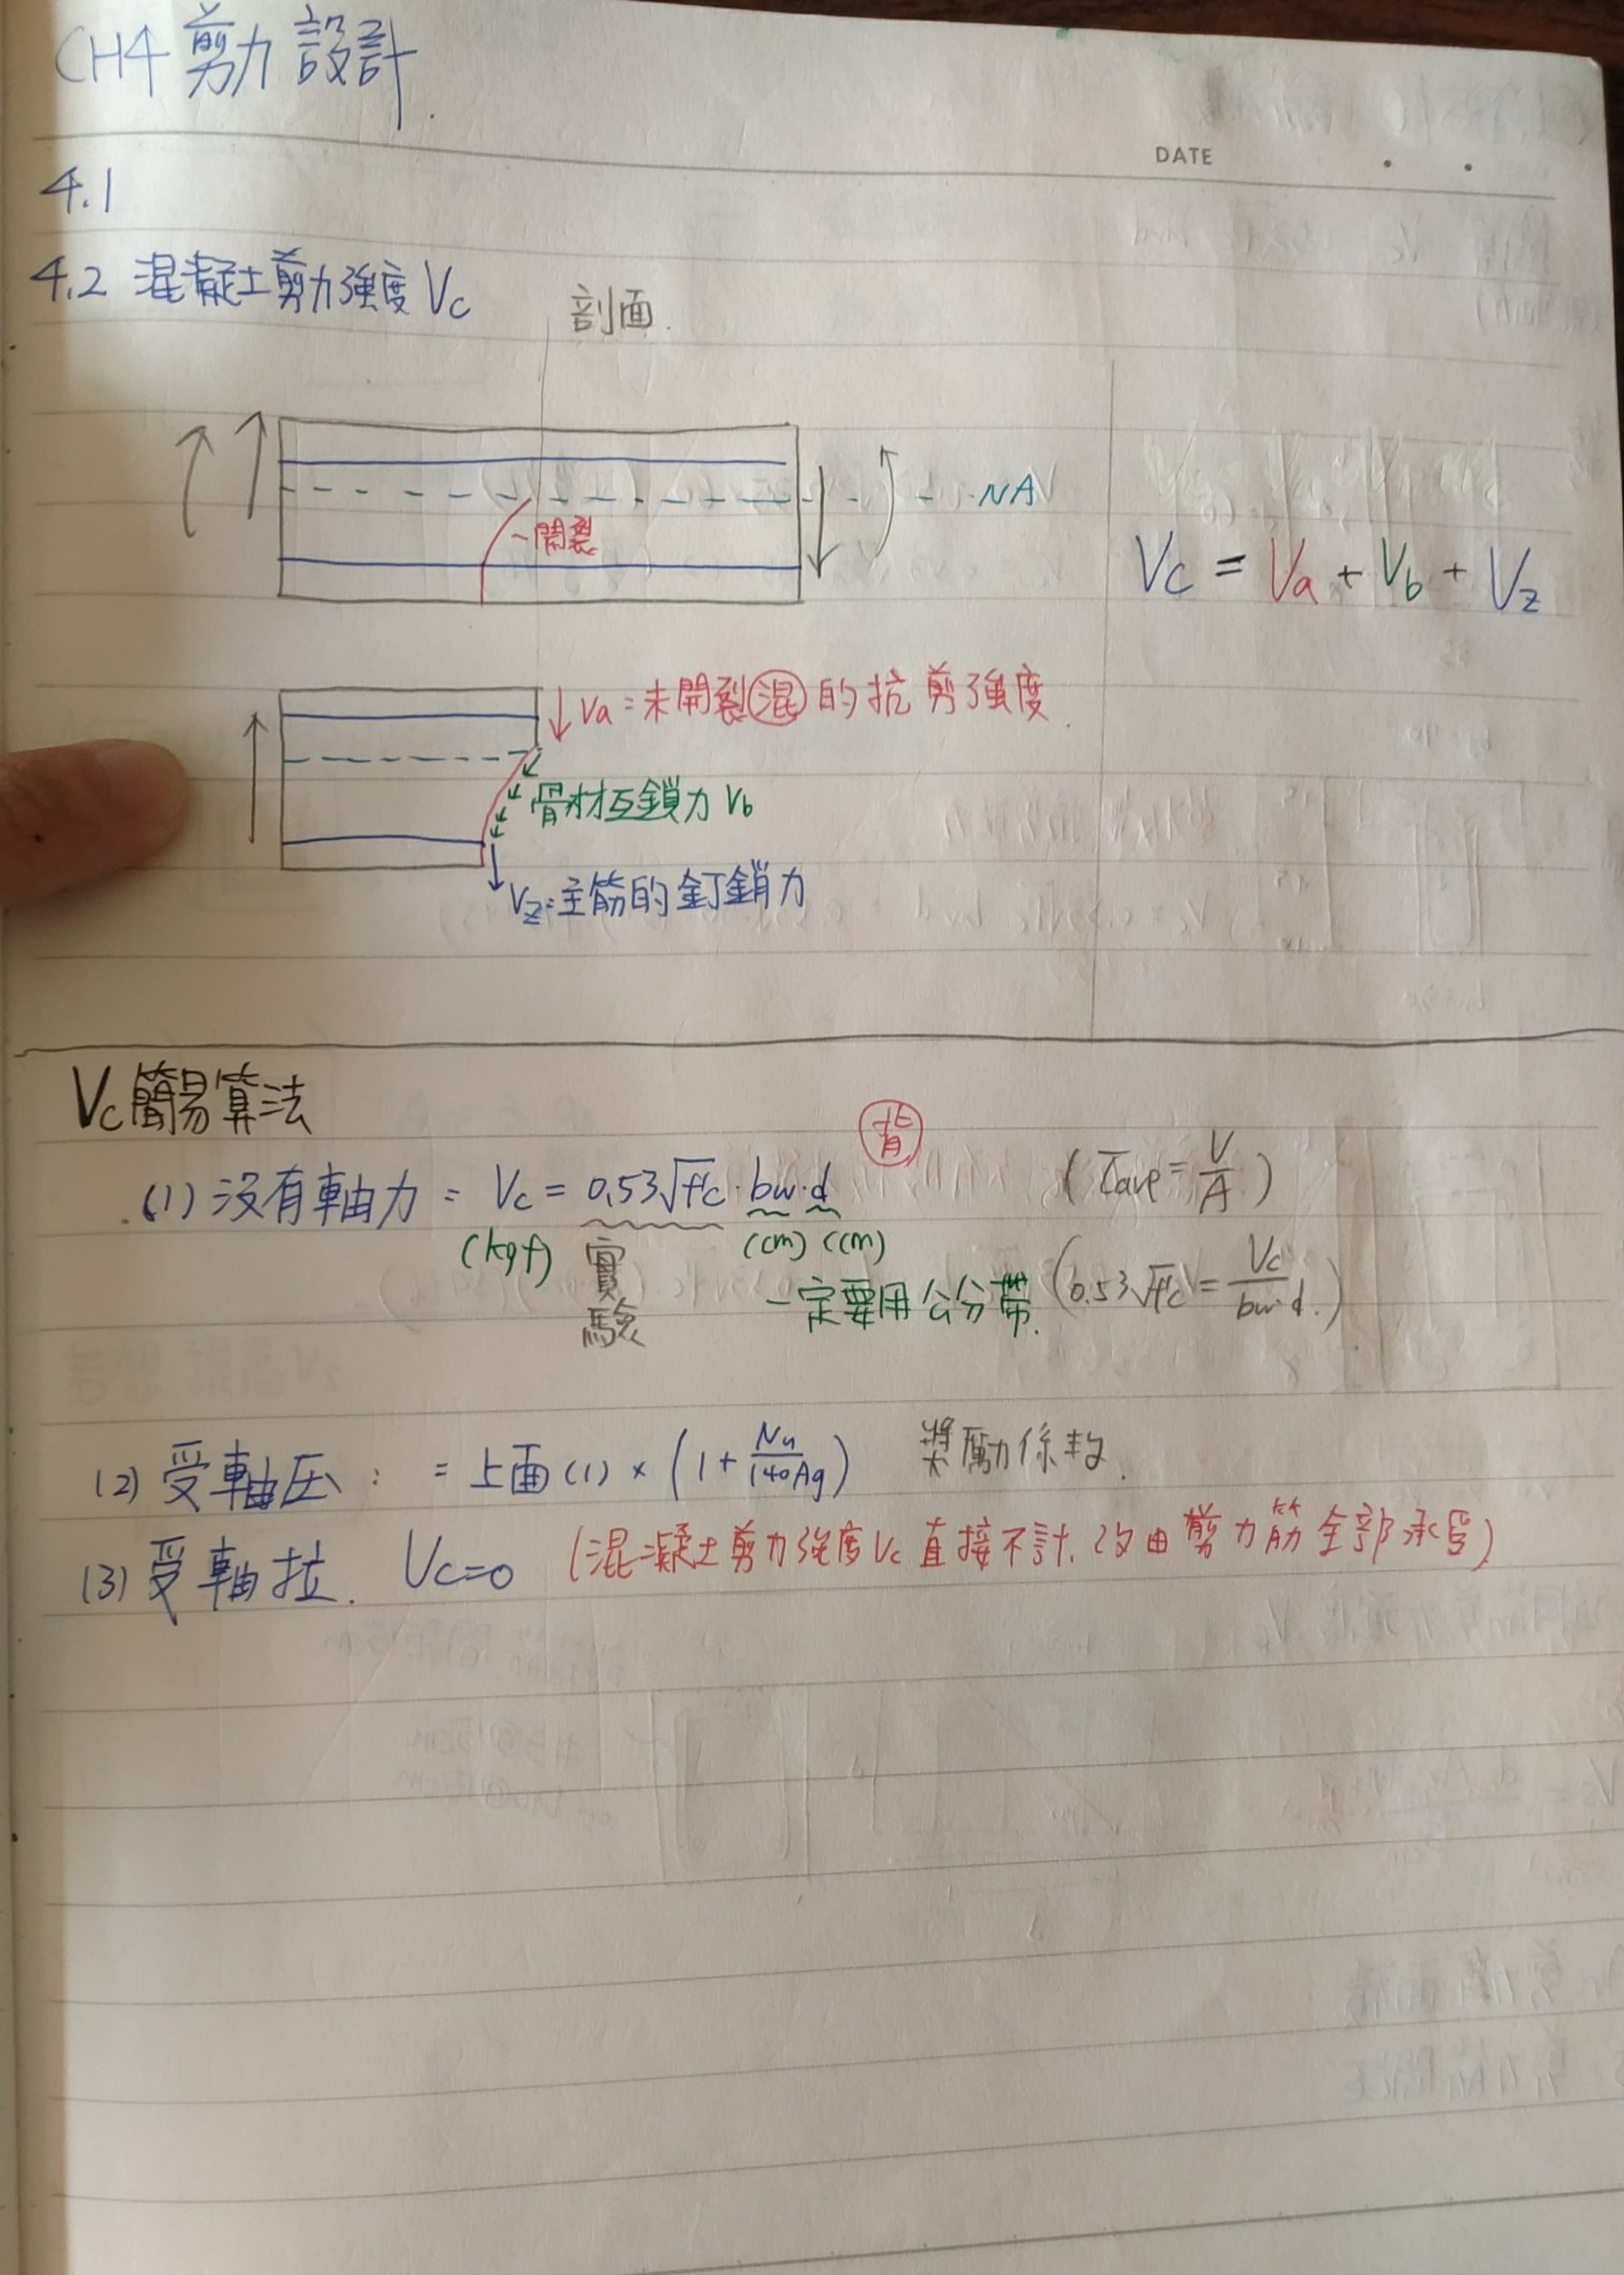 CH4 剪力設計.
DATE . .
4.1
4.2 混凝土剪力強度 Vc
剖面.
NA
開裂
Vc = Va + Vb + Vz
Va = 未開裂混的抗剪強度.
骨材互鎖力 Vb
Vz = 主筋的釘鎖力
Vc簡易算法
背
(1) 沒有軸力 = Vc = 0.53√f'c · bw · d (τave = V/A)
(kgf) 實驗 (cm) (cm)
一定要用公分帶. (0.53√f'c = Vc/bw·d.)
(2) 受軸压 : = 上面(1) × (1 + Nu/140Ag) 獎勵係数.
(3) 受軸拉. Vc=0 (混凝土剪力強度Vc直接不計,改由剪力筋全部承受)